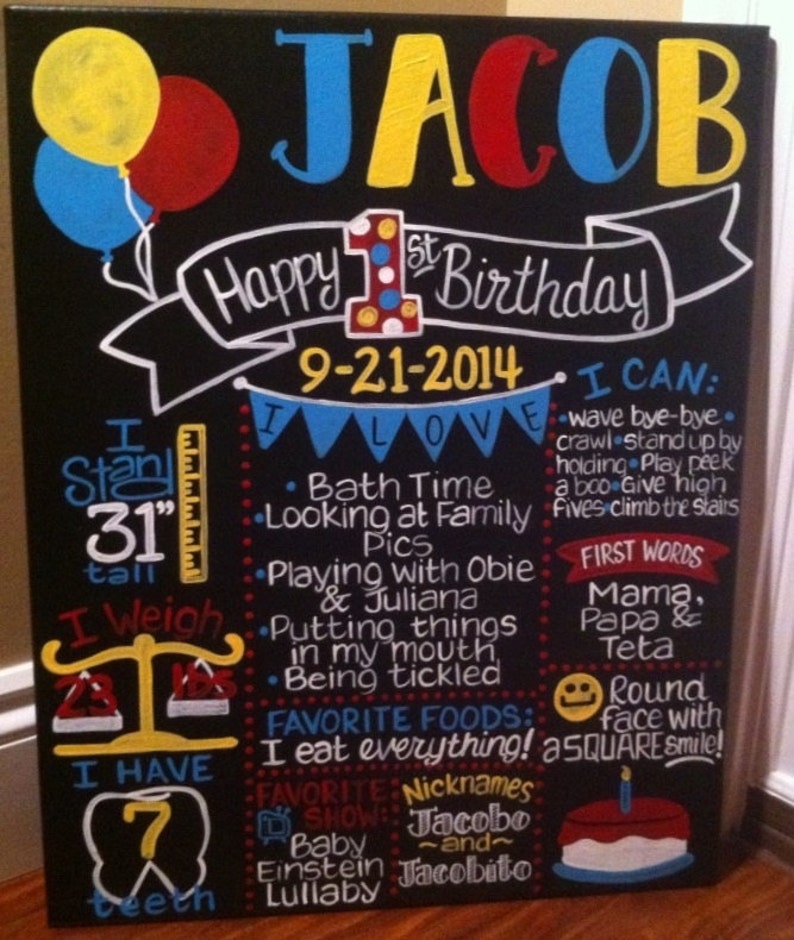 JACOB
Happy 1st Birthday
9-21-2014
I
Stand
31"
tall
I Weigh
23 lbs
I HAVE
7
teeth
I LOVE
• Bath Time
• Looking at Family
Pics
• Playing with Obie
& Juliana
• Putting things
in my mouth
• Being tickled
FAVORITE FOODS:
I eat everything!
FAVORITE
SHOW:
Baby
Einstein
Lullaby
Nicknames
Jacobo
~and~
Jacobito
I CAN:
• wave bye-bye •
crawl • stand up by
holding • Play peek
a boo • Give high
fives • climb the stairs
FIRST WORDS
Mama,
Papa &
Teta
Round
face with
a SQUARE smile!